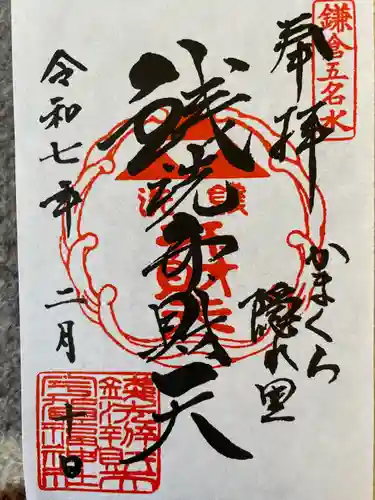 鎌倉五名水
奉拝
かまくら
隠れ里
銭洗弁財天
令和七年
二月
十日